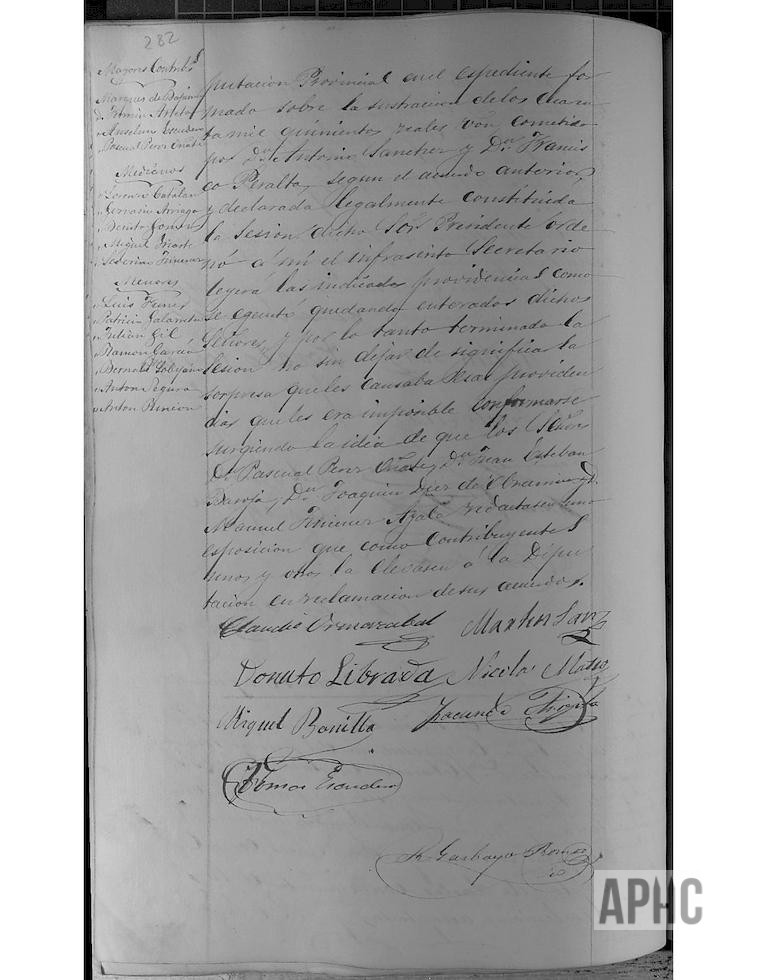 282
Mayores Contribs
Marques de Bajam
D. Fermin Arteta
" Anselmo Escudero
" Pascual Perez Oñate
Medianos
" Lorenzo Catalan
" Gervasio Arriaga
" Benito
" Miguel Iriarte
" Zeferino Jimenez
Menores
" Luis Funes
" Patricio Galarreta
" Julian Gil
" Ramon Garcia
" Bernabe
" Anton Segura
" Anton Rincon
putacion Provincial en el espediente for
mado sobre la sustracion delos cuaren
ta mil quinientos reales von cometida
por Dn. Antonio Sanchez y Dn. Francis
co Peralta, segun el acuerdo anterior,
y declarada legalmente constituida
la Sesion, dicho Sor Presidente orde
nó á mi el infrascrito Secretario
leyera las indicadas providencias como
se egecutó quedando enterados dichos
Señores, y por lo tanto terminada la
Sesion no sin dejar de significar la
sorpresa que les causaba esas providen
cias que les era imposible conformarse
surgiendo la idea de que los Señores
Dn. Pascual Perez Oñate, Dn. Juan Esteban
Dn. Joaquin Diez de Ulzurrun y D.
Manuel Jimenez Azala redactasen una
esposicion que como Contribuyentes
unos y otros la elevasen á la Dipu
tacion en reclamacion de sus acuerdos.
Claudio Ormazabal Martin Sanz
Donato Librada Nicolas Mateo
Miguel Bonilla Facundo
Tomas Escudero
Garbayo
APHC